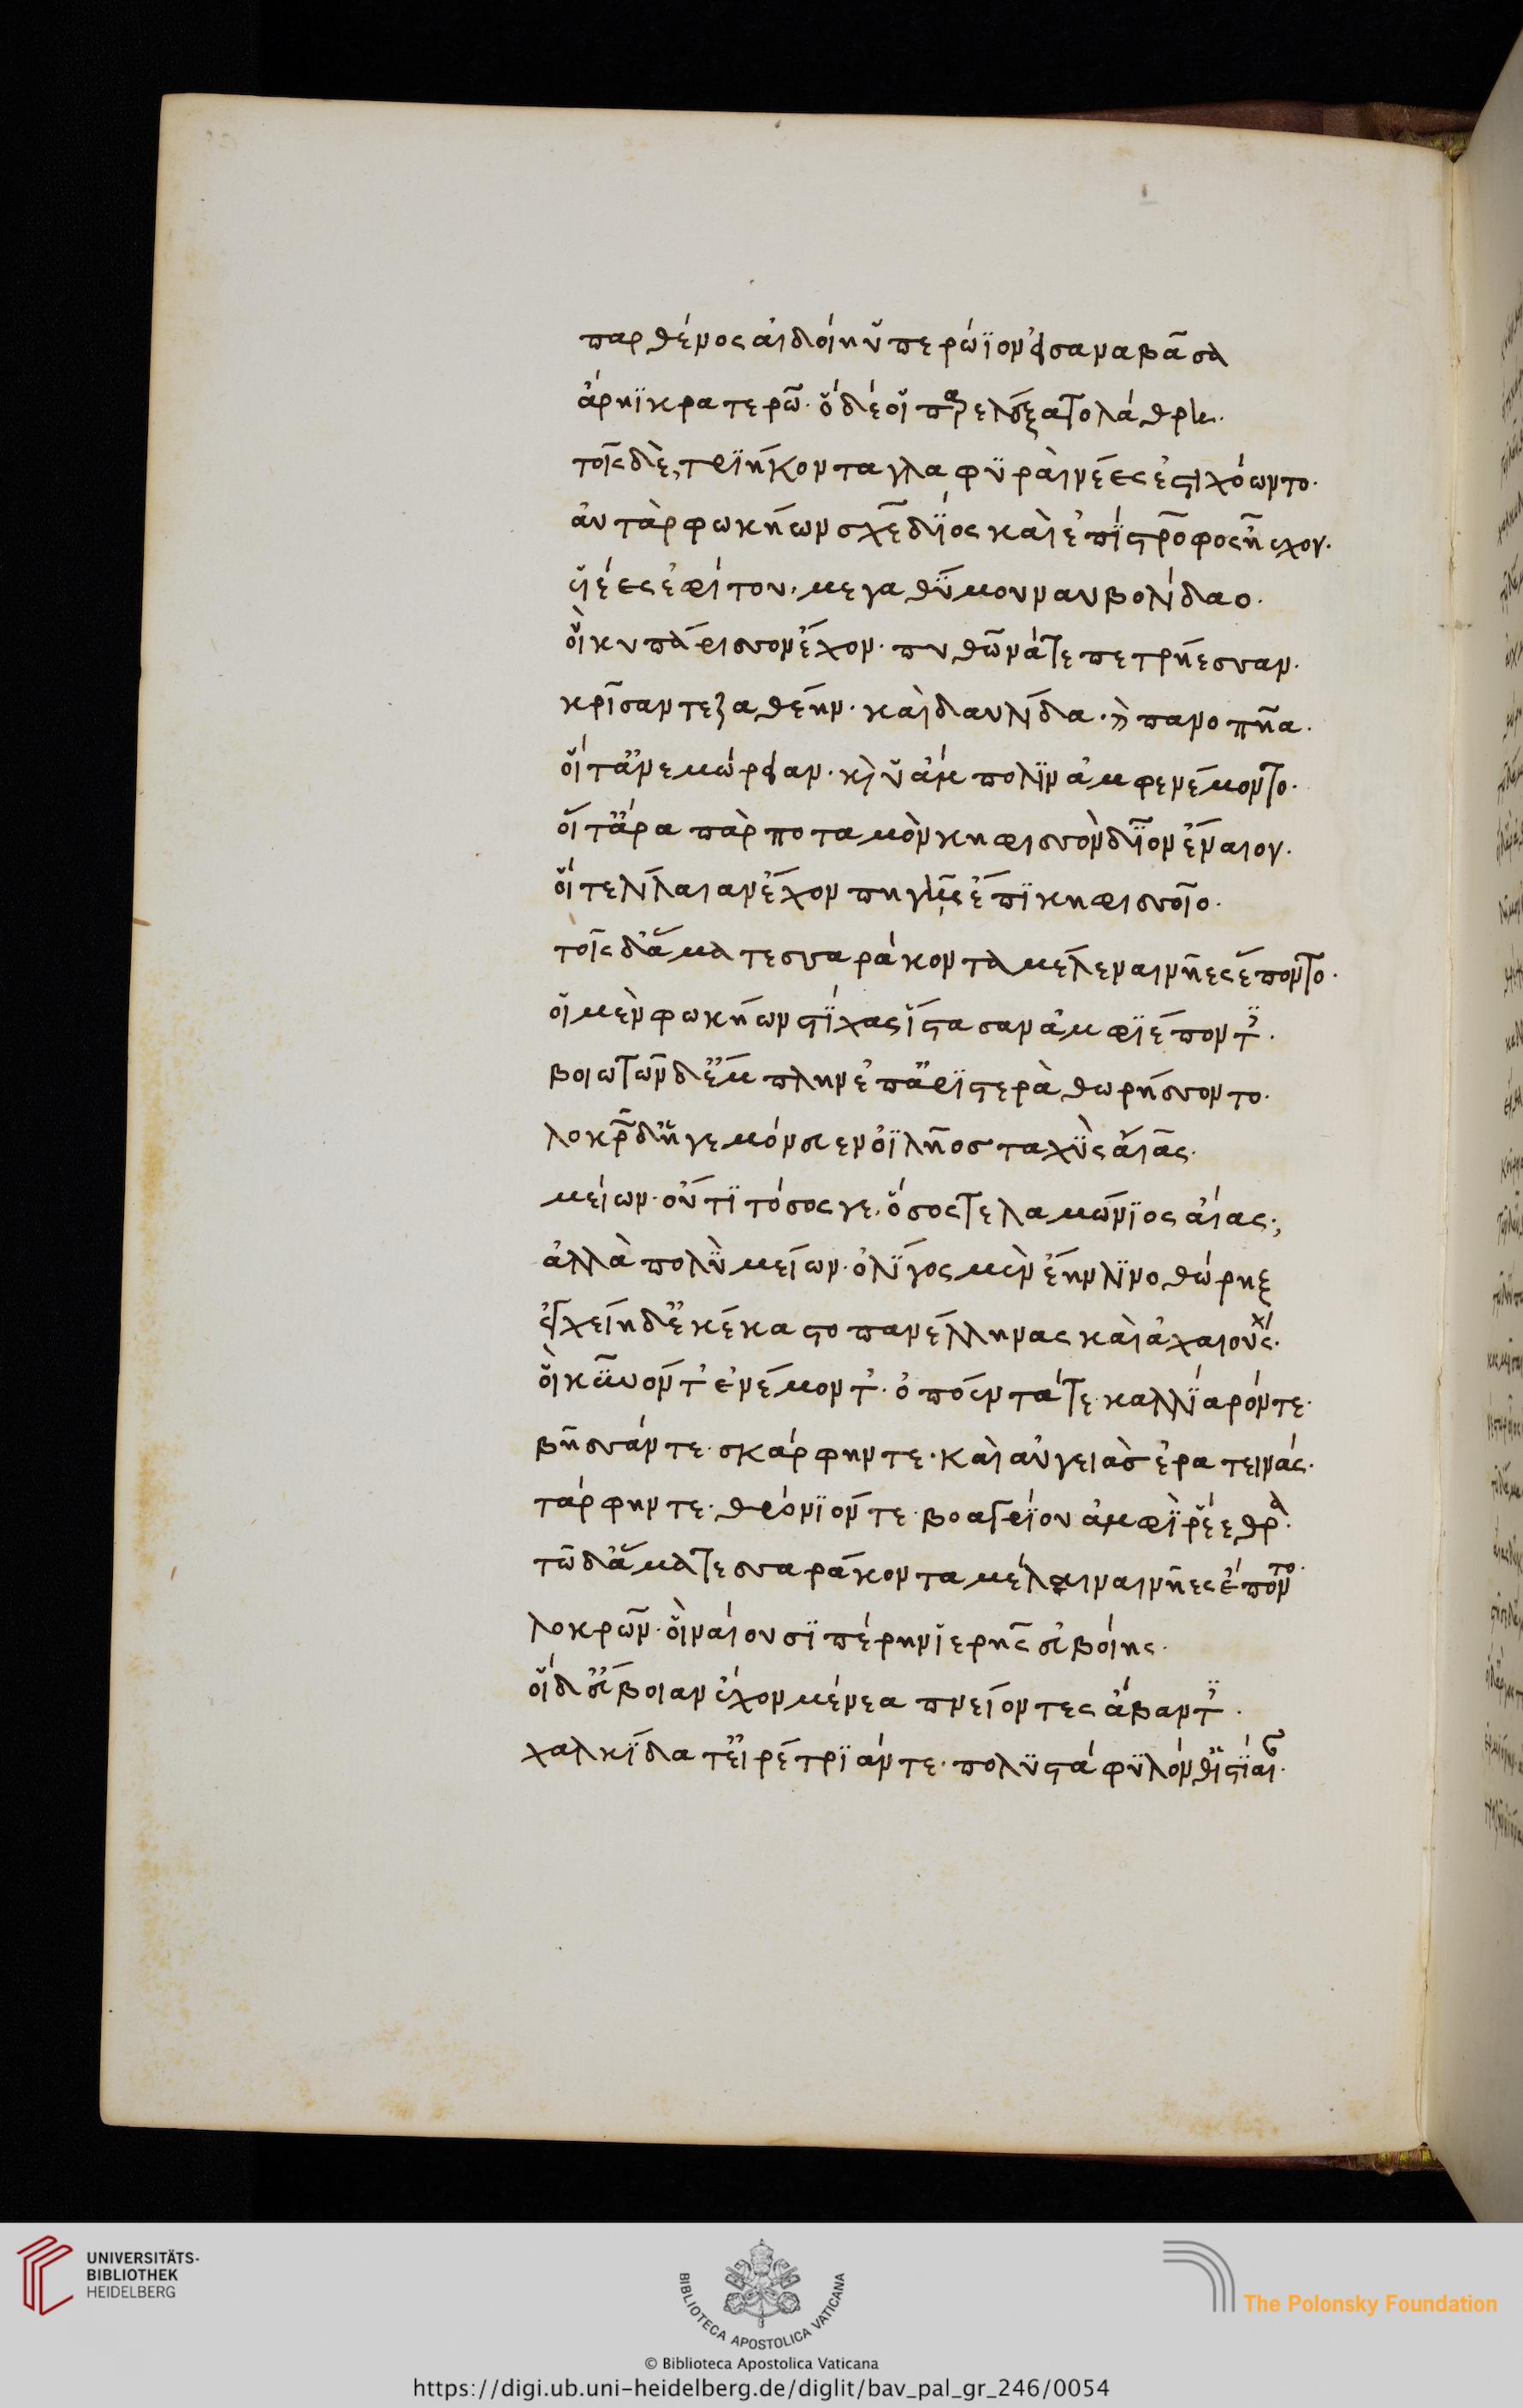 παρθένος αἰδοίη ὑπερώϊον εἰσαναβᾶσα
ἄρηϊ κρατερῶ· ὁ δέ οἱ παρελέξατο λάθρη·
τοῖς δὲ τριήκοντα γλαφυραὶ νέες ἐστιχόωντο·
αὐτὰρ φωκήων σχεδίος καὶ ἐπίστροφος ἦρχον·
υἱέες ἰφίτου· μεγαθύμου ναυβολίδαο·
οἳ κυπάρισσον ἔχον· πυθῶνά τε πετρήεσσαν·
κρίσαν τε ζαθέην· καὶ δαυλίδα· καὶ πανοπῆα·
οἵ τ' ἀνεμώρειαν· καὶ ὑάμπολιν ἀμφενέμοντο·
οἵ τ' ἄρα πὰρ ποταμὸν κηφισσὸν δῖον ἔναιον·
οἵ τε λίλαιαν ἔχον πηγῆς ἔπι κηφισσοῖο·
τοῖς δ' ἅμα τεσσαράκοντα μέλεναι νῆες ἕποντο·
οἱ μὲν φωκήων στίχας ἵστασαν ἀμφιέποντες·
βοιωτῶν δ' ἔμπλην ἐπ' ἀριστερὰ θωρήσσοντο·
λοκρῶν δ' ἡγεμόνευεν ὀϊλῆος ταχὺς αἴας·
μείων· οὔτι τόσος γε· ὅσος τελαμώνιος αἴας·,
ἀλλὰ πολὺ μείων· ὀλίγος μὲν ἔην λινοθώρηξ
ἐγχείη δ' ἐκέκαστο πανέλληνας καὶ ἀχαιούς·
οἳ κῦνον τ' ἐνέμοντ'· ὀπόεντά τε· καλλίαρόν τε·
βῆσσάν τε· σκάρφην τε· καὶ αὐγειὰς ἐρατεινάς·
τάρφην τε· θρόνιον τε· βοαγρίου ἀμφὶ ῥέεθρα·
τῶ δ' ἅμα τεσσαράκοντα μέλαιναι νῆες ἕποντο·
λοκρῶν· οἳ ναίουσι πέρην ἱερῆς εὐβοίης·
οἳ δ' εὔβοιαν ἔχον μένεα πνείοντες ἄβαντες·
χαλκίδα τ' εἰρέτριάν τε· πολυστάφυλόν θ' ἱστίαιαν·
UNIVERSITÄTS-
BIBLIOTHEK
HEIDELBERG
BIBLIOTECA APOSTOLICA VATICANA
© Biblioteca Apostolica Vaticana
The Polonsky Foundation
https://digi.ub.uni-heidelberg.de/diglit/bav_pal_gr_246/0054